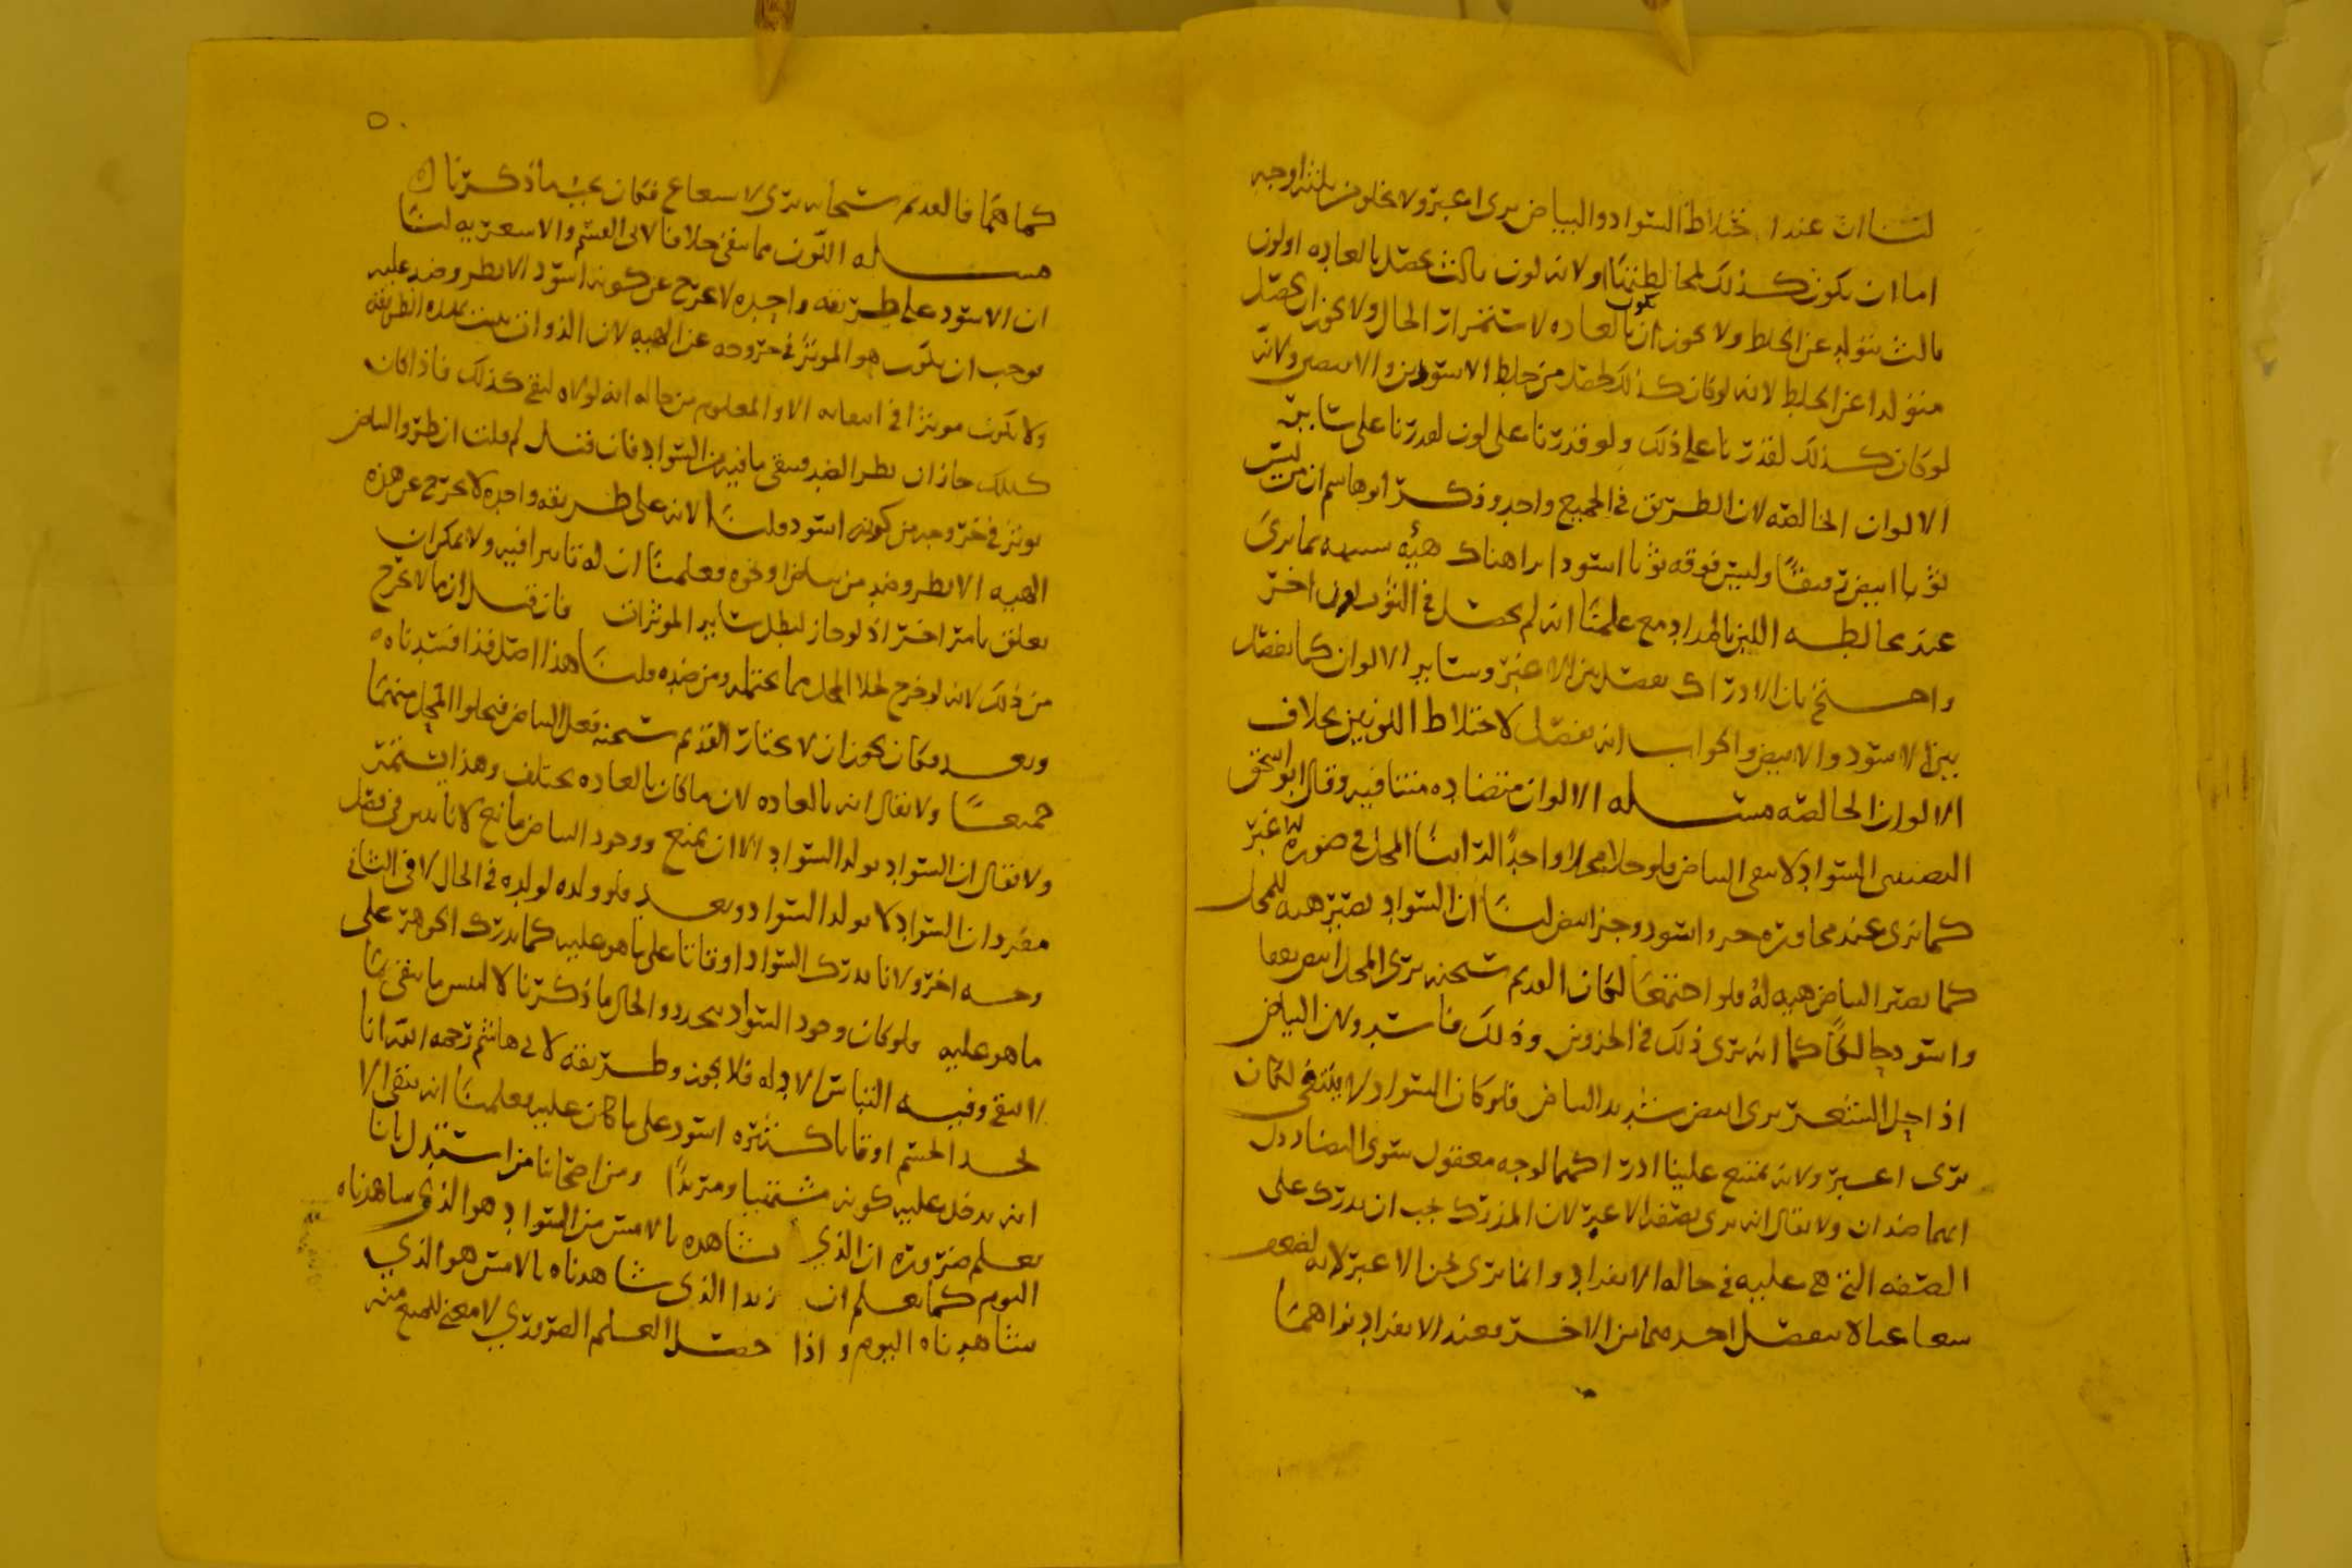 لنا ان عند اختلاط السواد والبياض يرى اغبر ولا يخلو من ثلثة اوجه
اما ان يكون كذلك لمخالطتهما او لانه لون ثالث يحصل بالعاده او لون
ثالث يتولد عن الخلط ولا يجوز ان يكون بالعاده لاستمرار الحال ولا يجوز ان يحصل
متولدا عن الخلط لانه لو كان كذلك لحصل من خلط الاسودين والابيضين ولانه
لو كان كذلك لقدرنا على ذلك ولو قدرنا على لون لقدرنا على سائر
الالوان الخالصه لان الطريق في الجميع واحد وذكر ابو هاشم ان من لبس
ثوبا ابيض رقيقا ولبس فوقه ثوبا اسود يرا هناك هيئه شبيهه بما يرى
عند مخالطه اللبن بالمداد مع علمنا انه لم يحصل في الثوب لون اخر
واحتج بان الادراك يفصل بين الاغبر وسائر الالوان كما يفصل
بين الاسود والابيض والجواب انه يفصل لاختلاط اللونين بخلاف
الالوان الخالصه مسله الالوان متضاده متنافيه وقال ابو اسحق
النصيبي السواد لا ينفي البياض فلو حلا محلا واحدا لراينا المحل في صوره الاغبر
كما نرى عند مجاوره جزو اسود وجز ابيض لنا ان السواد يصير هيه للمحل
كما يصير البياض هيه له فلو اجتمعا لكان القديم سبحنه يرى المحل ابيض يققا
واسود حالكا كما انه يرى ذلك في الجزوين وذلك فاسد ولان البياض
اذا حل الشعر يرى ابيض شديد البياض فلو كان السواد لا ينتفي لكان
يرى اغبر ولانه يمتنع علينا ادراكهما لوجه معقول سوى التضاد دل
انهما ضدان ولا يقال انه يرى بصفه الاغبر لان المدرك يجب ان يدرك على
الصفه التي هي عليه في حاله الانفراد وانما نرى نحن الاغبر لانه لضعف
شعاعنا لا ينفصل احدهما من الاخر وعند الانفراد نراهما
٥٠
كما هما فالقديم سبحانه يرى لا بشعاع فكان يجب ما ذكرناه
مسله اللون مما يبقى خلافا لابي القسم والاشعريه لنا
ان الاسود على طريقه واحده لا يخرج عن كونه اسود الا بطرو ضد عليه
يوجب ان يكون هو الموثر في خروجه عن الهيه لان الدواني يثبت بهذه الطريقه
ولا يكون موثرا في انتفايه الا والمعلوم من حاله انه لولاه لبقي كذلك فاذا كان
كذلك جاز ان يطرا الضد فينفي ما فيه من السواد فان قيل لم قلت ان طرو البياض
يوثر في خروجه من كونه اسود قلنا لانه على طريقه واحده لا يخرج عن هذه
الهيه الا بطرو ضد من بياض او نحوه فعلمنا ان له تاثيرا فيه ولا يمكن ان
يعلق بامر اخر اذ لو جاز لبطل سائر الموثرات فان قيل انما لا يخرج
من ذلك لانه لو خرج لخلا المحل مما يحتمله ومن ضده قلنا هذا اصل قد افسدناه
وبعد فكان يجوز ان لا يختار القديم سبحنه فعل البياض فيخلوا المحل منهما
جميعا ولا يقال انه بالعاده لان ما كان بالعاده يختلف وهذا يستمر
ولا يقال ان السواد يولد السواد الا ان يمنع ووجود البياض مانع لانا نبين في فصل
مفرد ان السواد لا يولد السواد وبعد فلو ولده لولده في الحال لا في الثاني
وجه اخر ولانا ندرك السواد اوقاتا على ما هو عليه كما ندرك الجوهر على
ما هو عليه فلو كان وجود السواد يتجدد والحال ما ذكرنا لالتبس ما يبقى بما
لا يبقى وفيه التباس الادله فلا يجوز وطريقه لابي هاشم رحمه الله انا
نجد الجسم اوقاتا كثيره اسود على ما كان عليه فعلمنا انه يبقى الا
انه يدخل عليه كونه مشتبها ومتردا ومن اصحابنا من استدل بانا
نعلم ضروره ان الذي نشاهده بالامس من السواد هو الذي شاهدناه
اليوم كما نعلم ان زيدا الذي شاهدناه بالامس هو الذي
شاهدناه اليوم واذا حصل العلم الضروري لا معنى للمنع منه